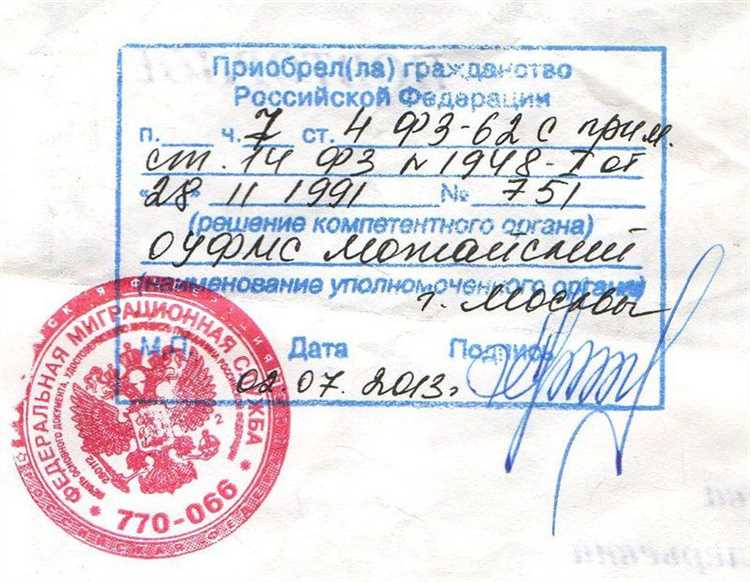 Приобрел(ла) гражданство
Российской Федерации
п. ___ ч. 7 ст. 4 ФЗ-62 с прим.
ст. 14 ФЗ №1948-I от
«28» 11 1991 № 751
(решение компетентного органа)
ОУФМС Можайский
(наименование уполномоченного органа)
г. Москвы
М.П. Дата Подпись
02.07.2013г
ФЕДЕРАЛЬНАЯ МИГРАЦИОННАЯ СЛУЖБА
* 770-066 *